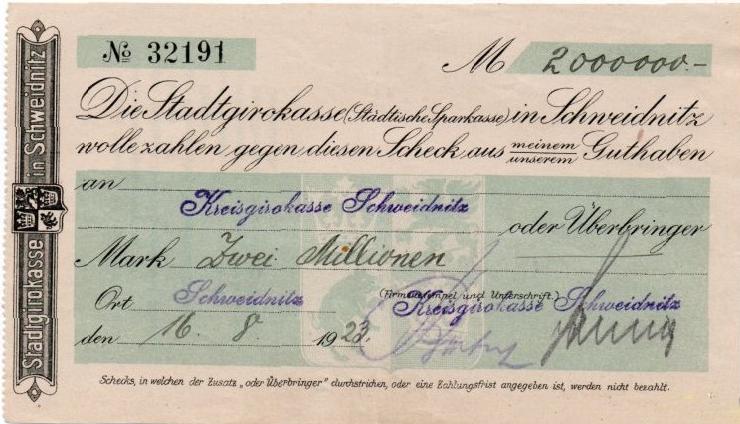 Stadtgirokasse in Schweidnitz
No 32191
M 2000000.-
Die Stadtgirokasse (Städtische Sparkasse) in Schweidnitz
wolle zahlen gegen diesen Scheck aus meinem Guthaben
unserem
an
Kreisgirokasse Schweidnitz
oder Überbringer
Mark Zwei Millionen
(Firmastempel und Unterschrift.)
Ort Schweidnitz Kreisgirokasse Schweidnitz
den 16. 8. 1923.
Schecks, in welchen der Zusatz „oder Überbringer" durchstrichen, oder eine Zahlungsfrist angegeben ist, werden nicht bezahlt.